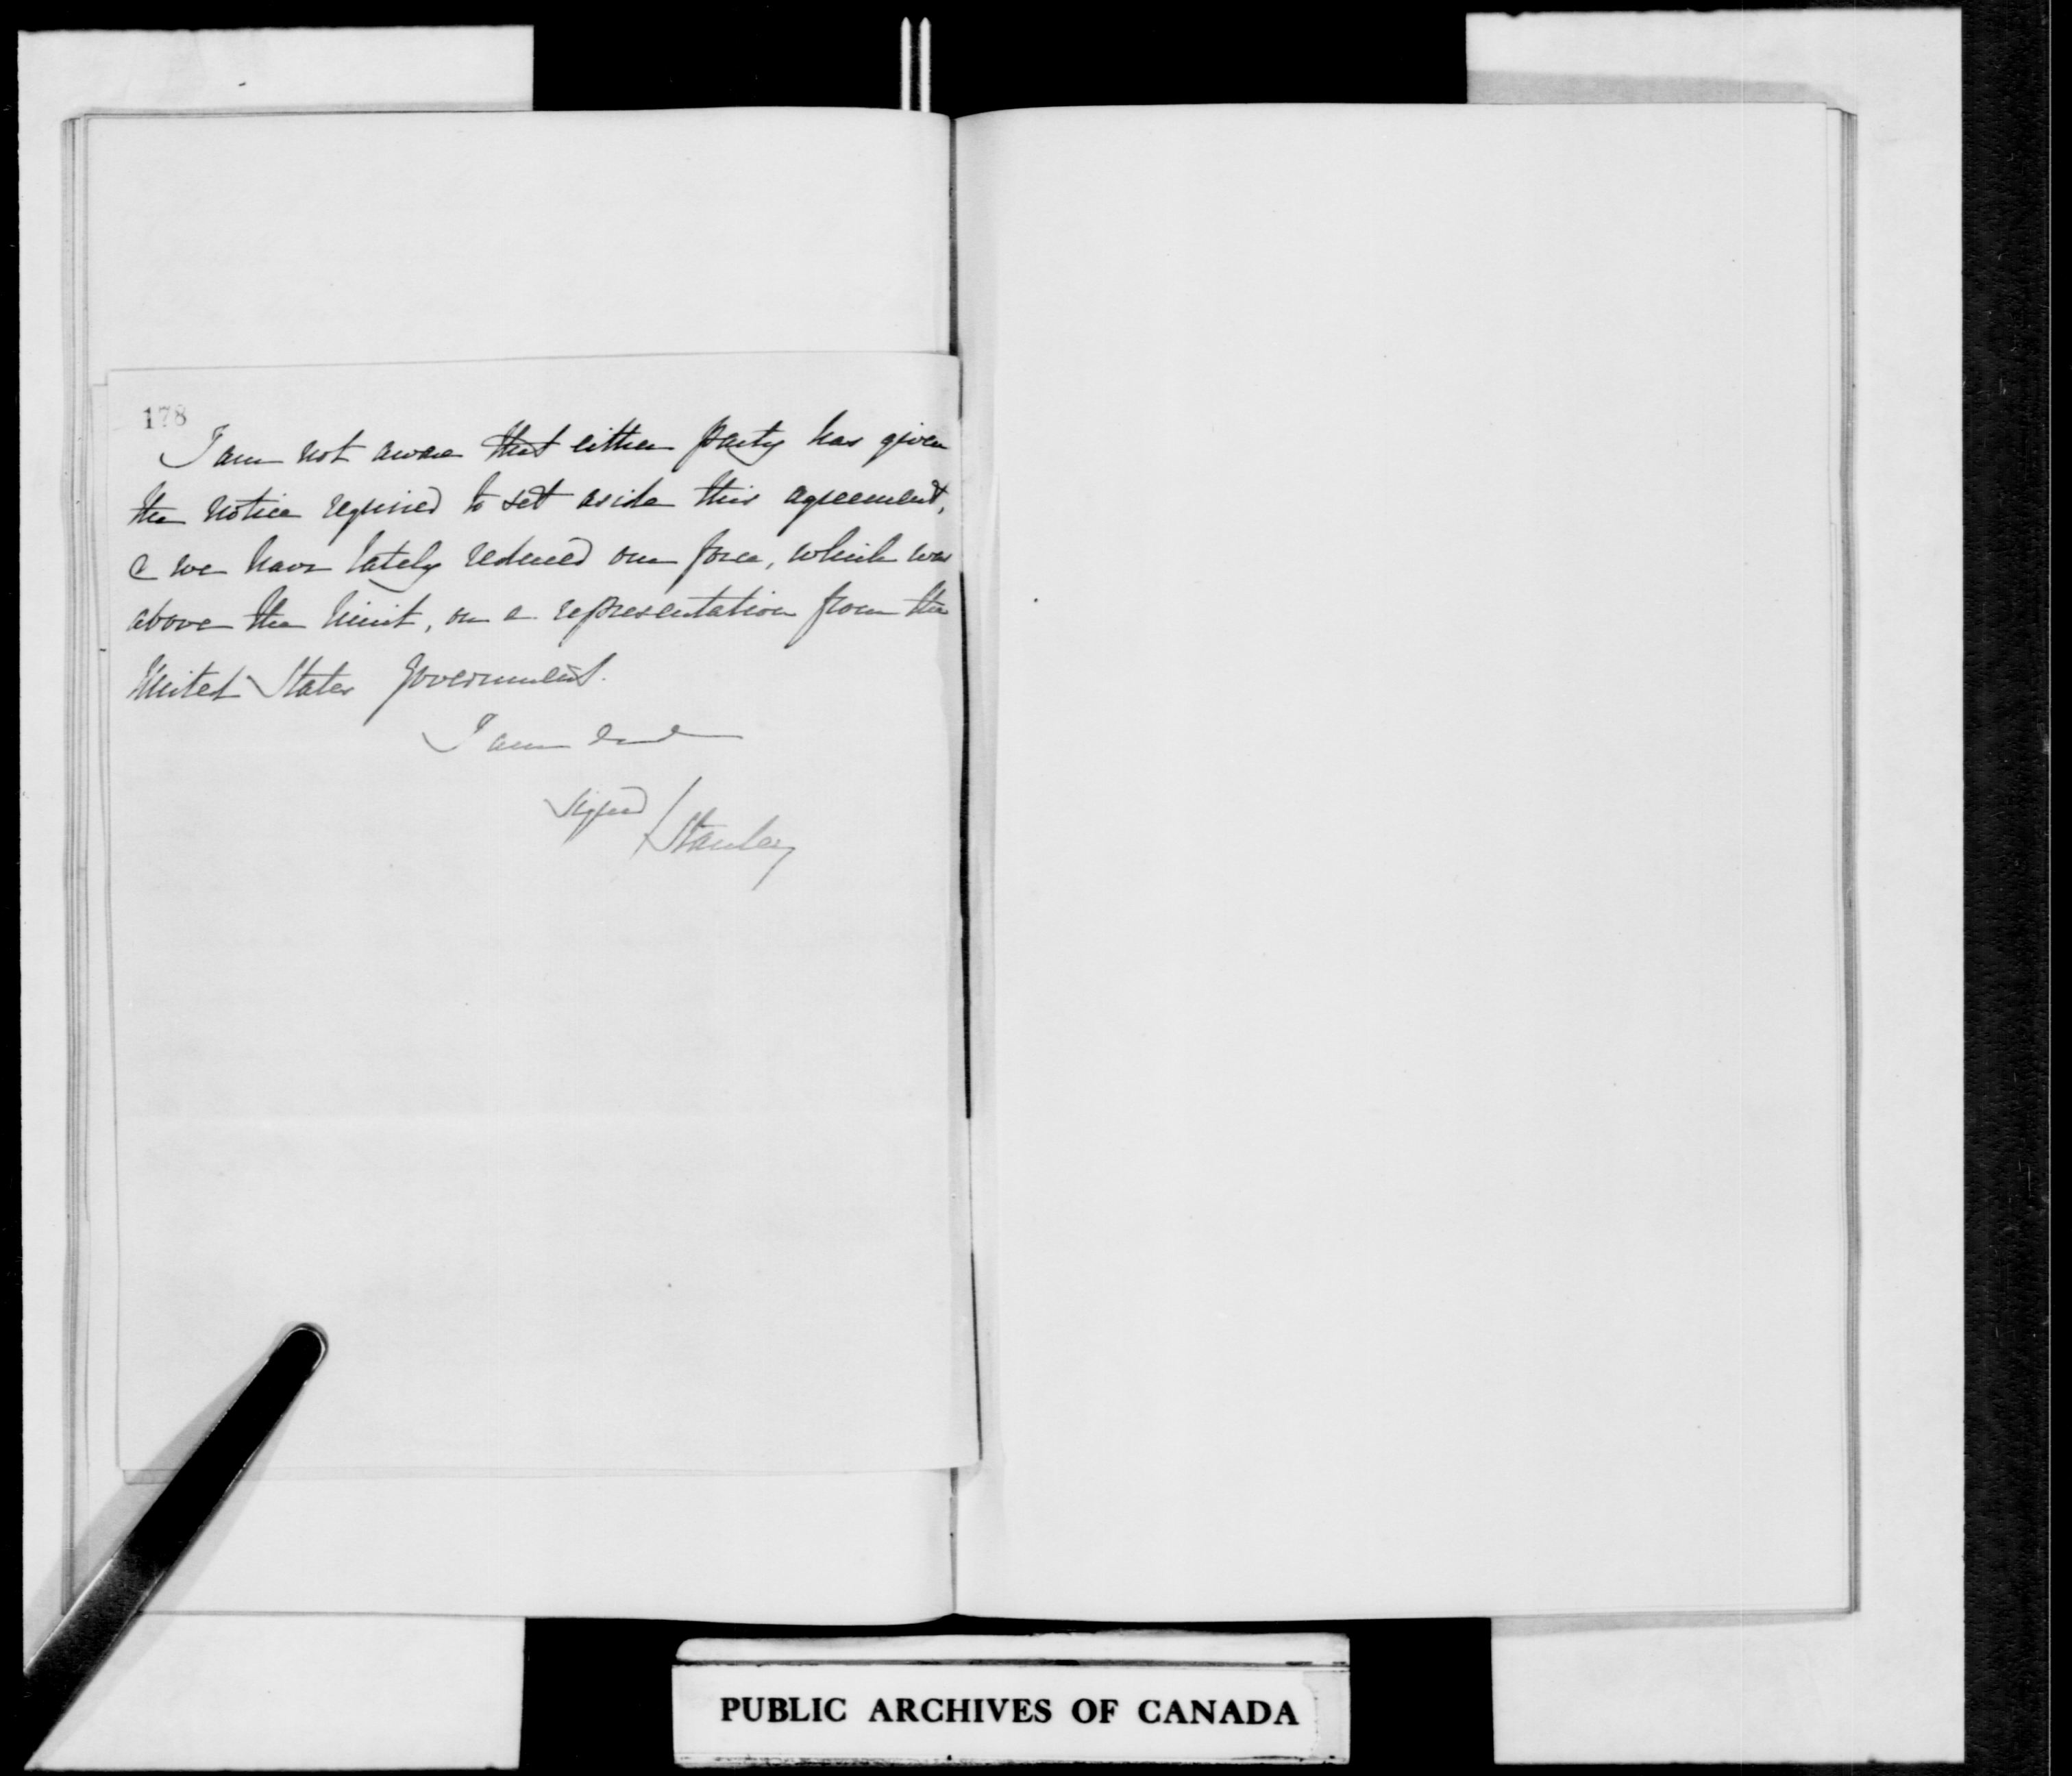 178
I am not aware that either party has given
the notice required to set aside this agreement,
& we have lately reduced our force, which was
above the limit, on a representation from the
United States Government.
I am
signed / Stanley
PUBLIC ARCHIVES OF CANADA